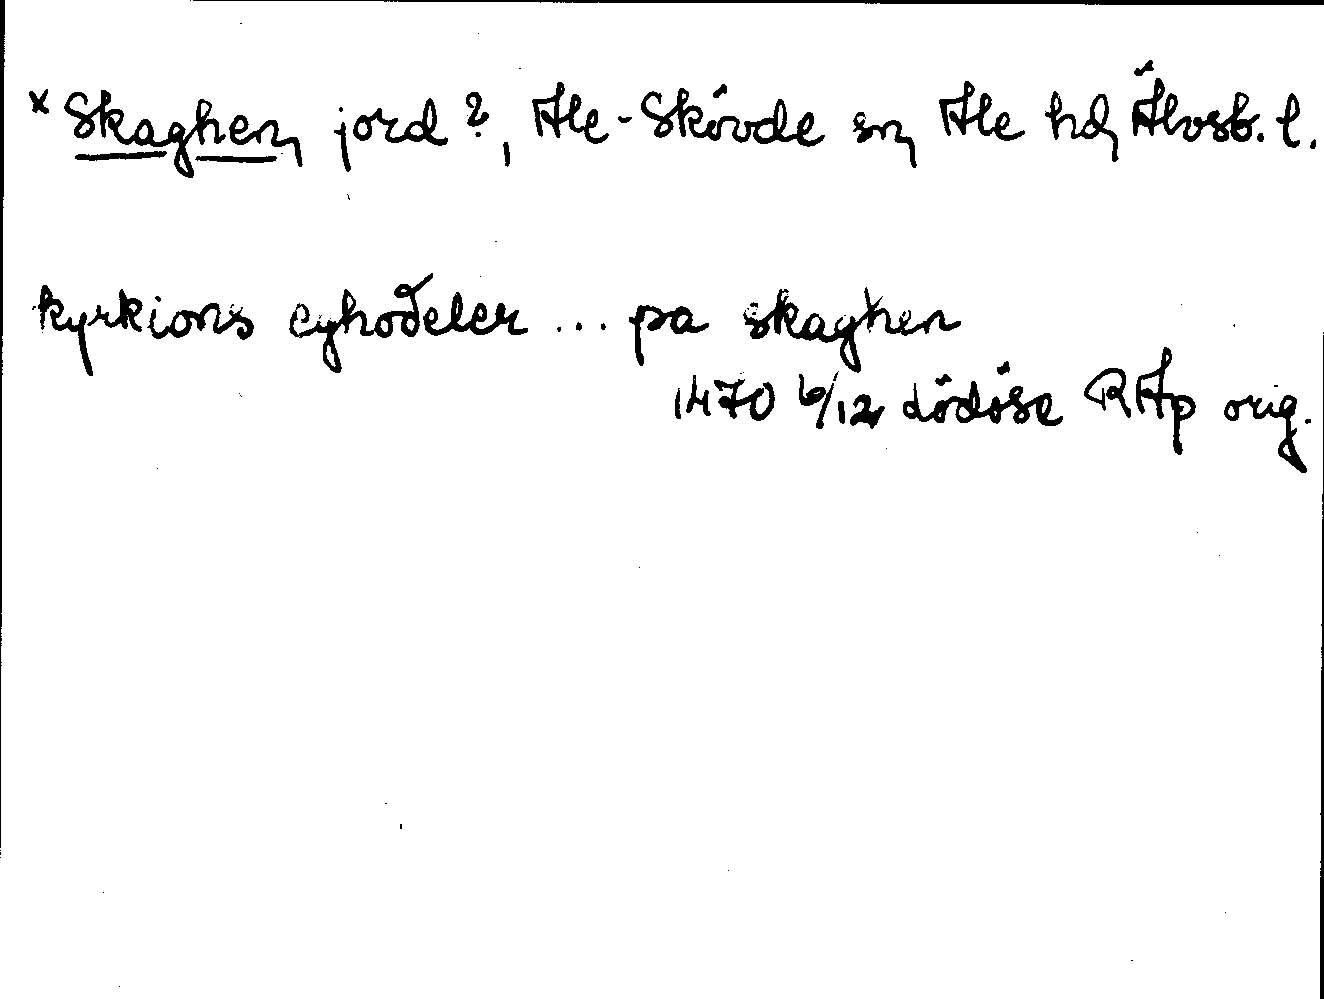 × Skaghen, jord?, Ale-Skövde sn, Ale hd, Älvsb. l.
kyrkions eyhodeler ... pa skaghen
1470 6/12 Lödöse RAp orig.